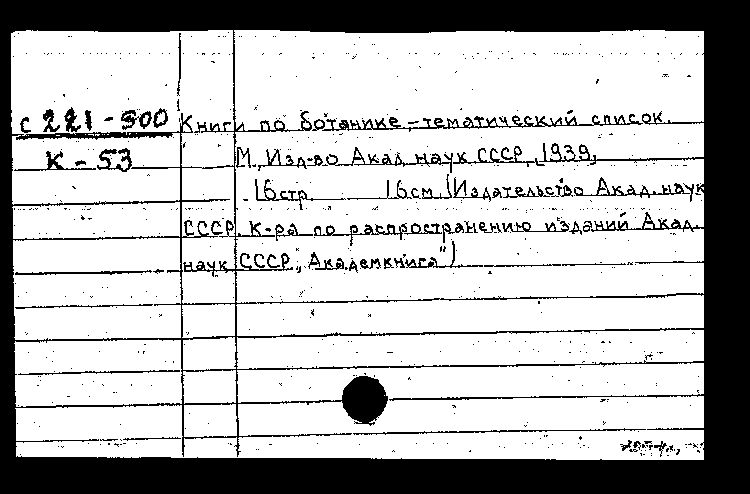 с 221-300 Книги по ботанике,-тематический список.
К-53 М., Изд-во Акад. наук СССР, 1939,
16стр. 16см. (Издательство Акад. наук
СССР. К-ра по распространению изданий Акад.
наук СССР „Академкнига")